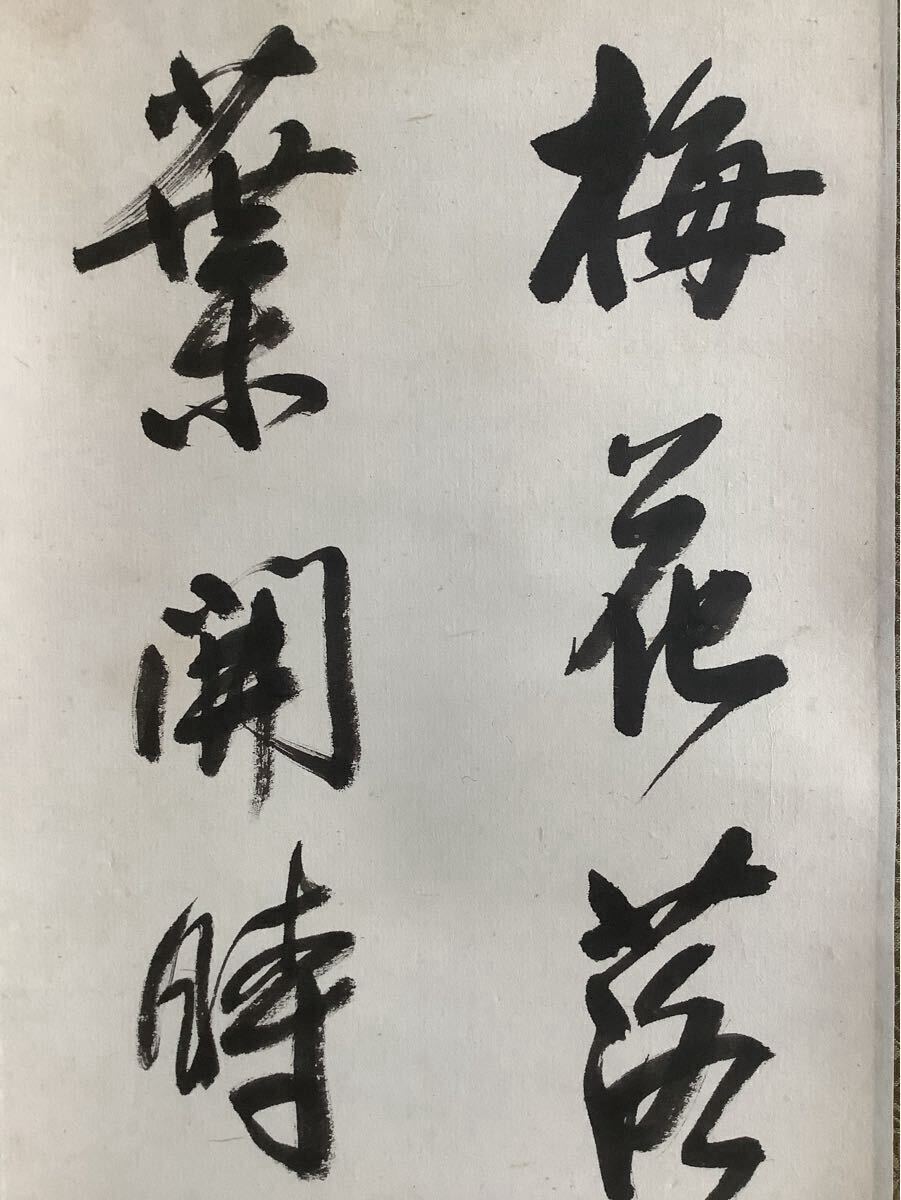 梅花落
葉開時